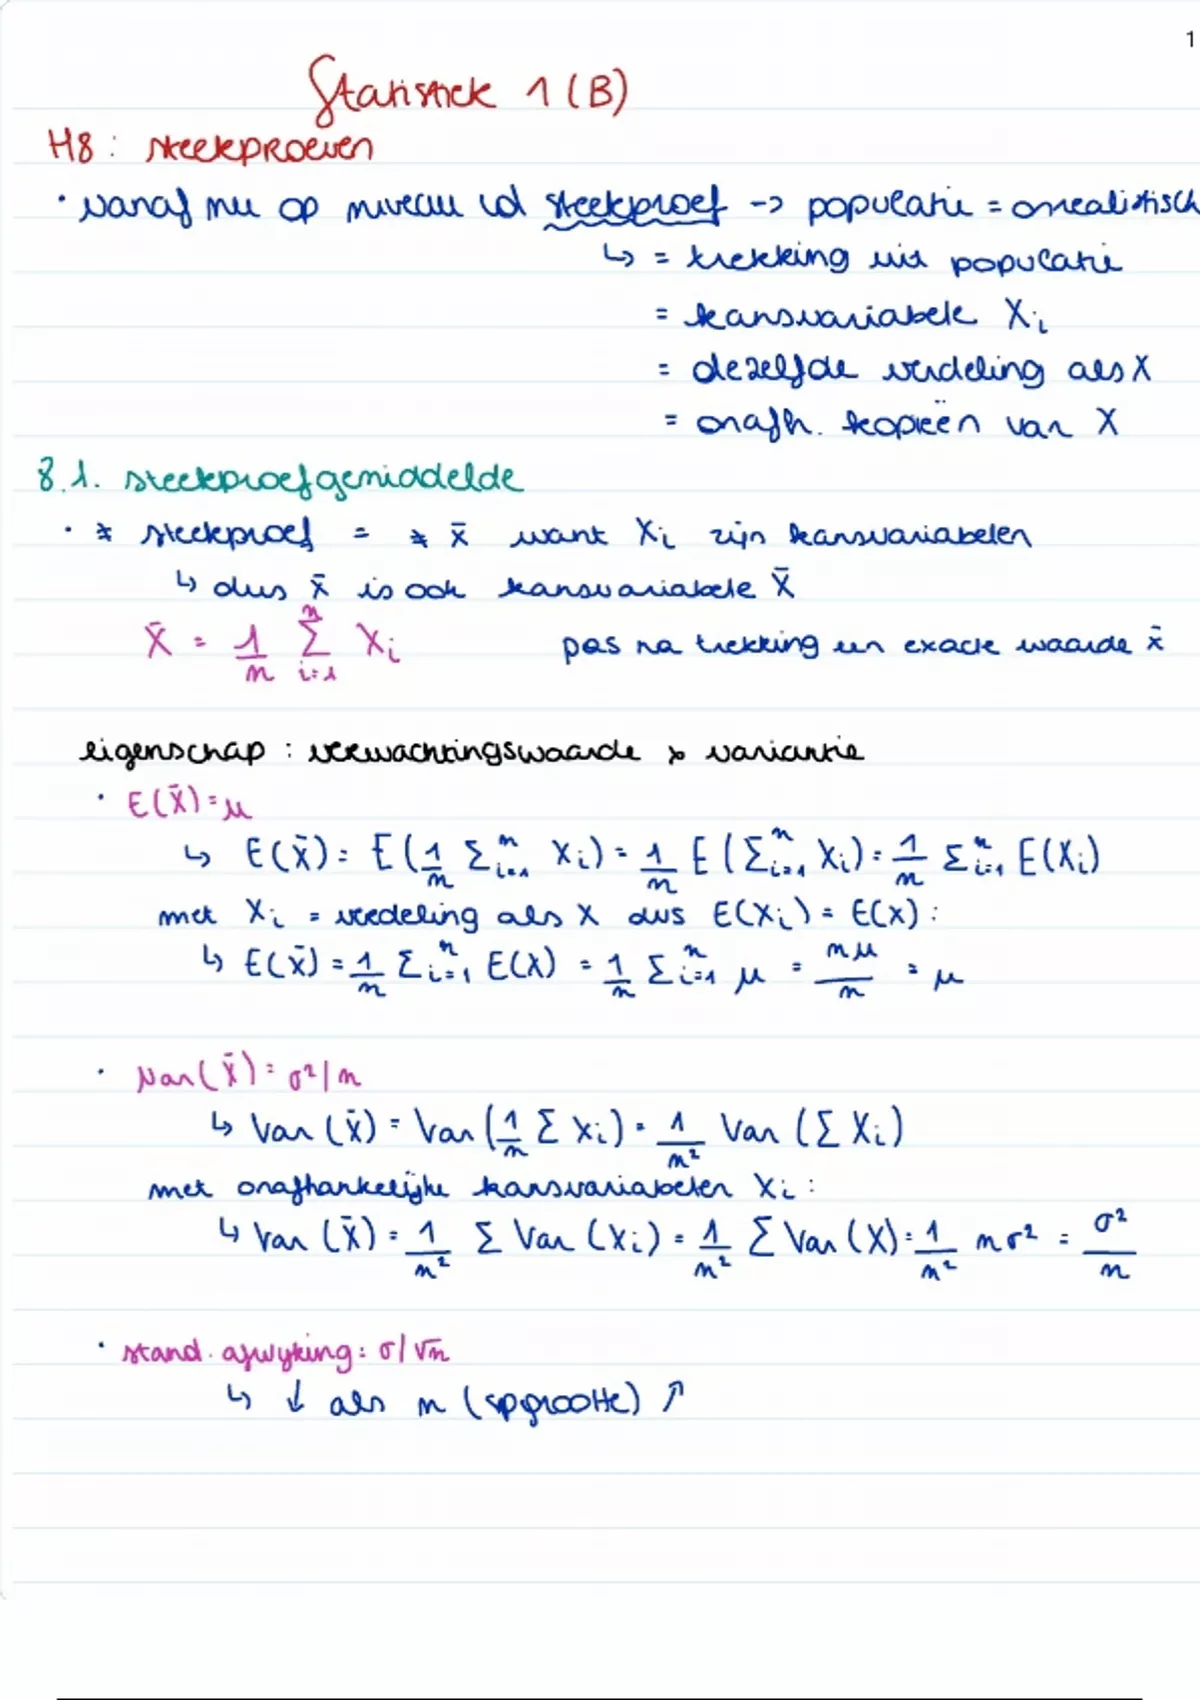 1
Statistiek 1 (B)
H8: steekproeven
· vanaf nu op niveau vd steekproef -> populatie = onrealistisch
↳ = trekking uit populatie
= kansvariabele Xᵢ
= dezelfde verdeling als X
= onafh. kopieën van X
8.1. steekproefgemiddelde
· ≠ steekproef = ≠ x̄ want Xᵢ zijn kansvariabelen
↳ dus x̄ is ook kansvariabele X̄
X̄ = 1/n Σⁿᵢ₌₁ Xᵢ pas na trekking een exacte waarde x̄
eigenschap: verwachtingswaarde & variantie
· E(X̄) = μ
↳ E(X̄) = E(1/n Σⁿᵢ₌₁ Xᵢ) = 1/n E(Σⁿᵢ₌₁ Xᵢ) = 1/n Σⁿᵢ₌₁ E(Xᵢ)
met Xᵢ = verdeling als X dus E(Xᵢ) = E(X):
↳ E(X̄) = 1/n Σⁿᵢ₌₁ E(X) = 1/n Σⁿᵢ₌₁ μ = nμ/n = μ
· Var(X̄) = σ²/n
↳ Var(X̄) = Var(1/n Σ Xᵢ) = 1/n² Var(Σ Xᵢ)
met onafhankelijke kansvariabelen Xᵢ:
↳ Var(X̄) = 1/n² Σ Var(Xᵢ) = 1/n² Σ Var(X) = 1/n² nσ² = σ²/n
· stand. afwijking: σ/√n
↳ ↓ als n (spgrootte) ↑